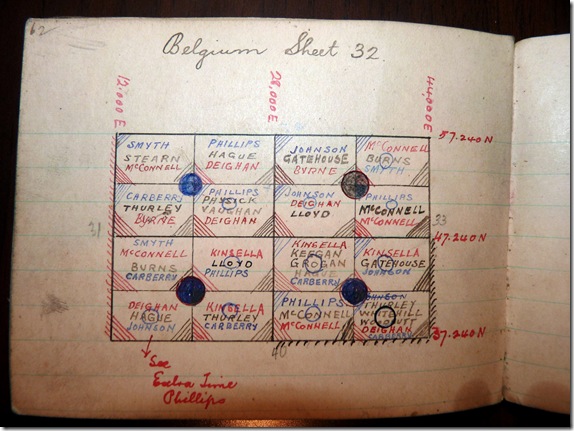 62
Belgium Sheet 32
12.000 E
28,000 E
44000E
57.240N
SMYTH
STEARN
McCONNELL
PHILLIPS
HAGUE
DEIGHAN
JOHNSON
GATEHOUSE
BYRNE
McCONNELL
BURNS
SMYTH
CARBERRY
THURLEY
BYRNE
PHILLIPS
PHYSICK
VAUGHAN
DEIGHAN
JOHNSON
DEIGHAN
LLOYD
PHILLIPS
McCONNELL
31
33
47.240N
SMYTH
McCONNELL
BURNS
CARBERRY
KINSELLA
LLOYD
PHILLIPS
KINSELLA
KEEGAN
GROGAN
HAGUE
CARBERRY
KINSELLA
GATEHOUSE
JOHNSON
DEIGHAN
HAGUE
JOHNSON
KINSELLA
THURLEY
CARBERRY
PHILLIPS
McCONNELL
McCONNELL
JOHNSON
THURLEY
WHITEHILL
DEIGHAN
CARBERRY
37.240N
40
See
Extra Time
Phillips